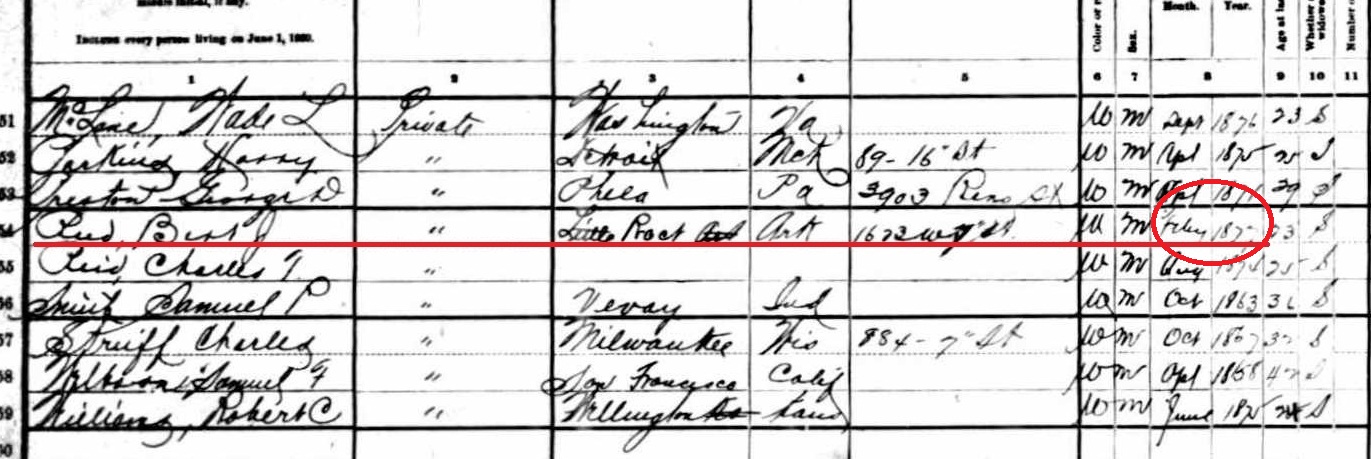 Include every person living on June 1, 1900.
Color or r
Sex.
Month. Year.
Age at las
Whether
widowe
Number o
1 2 3 4 5 6 7 8 9 10 11
51 McLine, Wade L Private Washington Va W M Sept 1876 23 S
52 Harry " Detroit Mch 89-16" St W M Apl 1875 25 S
53 Preston George D " Phila Pa 3903 Reno St W M Apl 29 S
54 Reid, Bert J " Little Rock Ark Ark St. W M Feby 1877 23 S
55 Reid, Charles " W M Aug 1874 25 S
56 Smith Samuel P " Vevay Ind W M Oct 1863 36 S
57 Struiff Charles " Milwaukee Wis 884-7" St W M Oct 1867 32 S
58 Samuel F " San Francisco Calif W M Apl 1858 42 S
59 Williams, Robert C " Wellington Kans W M June 1875 24 S
60